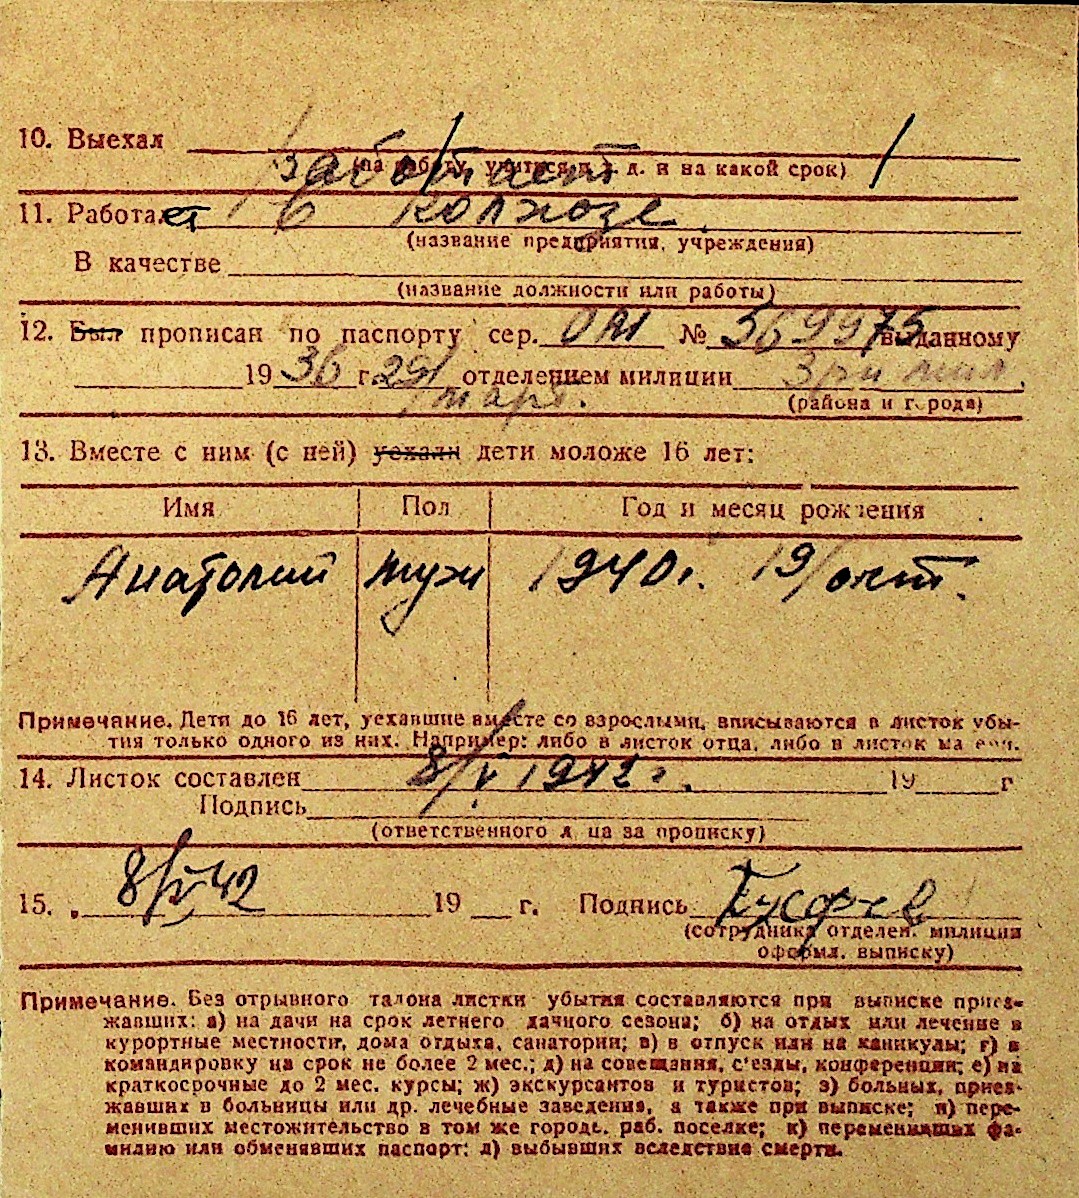 10. Выехал
работает
(на работу, учиться и т. д. и на какой срок)
11. Работает в колхозе
(название предприятия, учреждения)
В качестве
(название должности или работы)
12. Был прописан по паспорту сер. № 569975 выданному
1936 г. 29/ отделением милиции
март. (района и города)
13. Вместе с ним (с ней) уехали дети моложе 16 лет:
Имя Пол Год и месяц рождения
Анатолий муж 1940 г. 19/окт.
Примечание. Дети до 16 лет, уехавшие вместе со взрослыми, вписываются в листок убы-
тия только одного из них. Например: либо в листок отца, либо в листок матери.
14. Листок составлен 8/V 1942 г. 19 г
Подпись
(ответственного лица за прописку)
15. 8/V 42 19 г. Подпись
(сотрудника отделен. милиции
оформл. выписку)
Примечание. Без отрывного талона листки убытия составляются при выписке приез-
жавших: а) на дачи на срок летнего дачного сезона; б) на отдых или лечение в
курортные местности, дома отдыха, санатории; в) в отпуск или на каникулы; г) в
командировку на срок не более 2 мес.; д) на совещания, с'езды, конференции; е) на
краткосрочные до 2 мес. курсы; ж) экскурсантов и туристов; з) больных, приез-
жавших в больницы или др. лечебные заведения, а также при выписке; и) пере-
менивших местожительство в том же городе, раб. поселке; к) переменивших фа-
милию или обменявших паспорт; л) выбывших вследствие смерти.